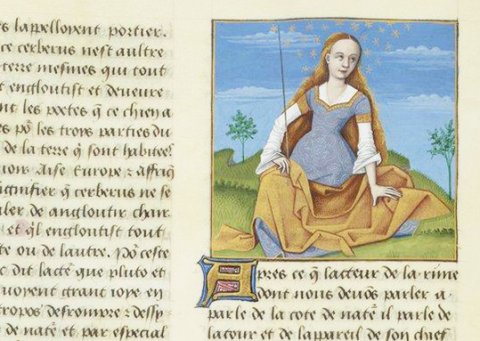 es lappelloyent portier.
ce cerberus nest aultre
terre mesmes qui tout
engloutist et deueure
nt les poetes q̃ ce chien a
es po' les troys parties du
de la terre q̃ sont habitee
Aise Europe z affriq̃
ignifier q̃ cerberus ne se
aler de angloutir chair
et q̃l engloutist tout
te ou de lautre. Po' ceste
e dit lacte' que pluto et
uoyent grant ioye en
tropos defrompre z dessy
de nate' et par especial
Apres ce q̃ lacteur de la rime
dont nous deuõs parler a
parle de la cote de nate' il parle de
la tour et de lapareil de son chief